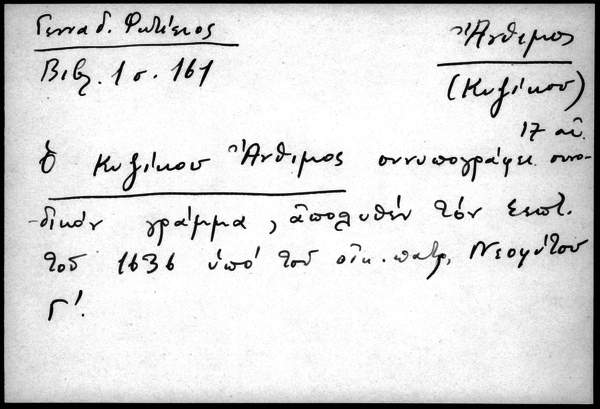 Γενναδ. Φωτιειος
Βιβλ. 1 σ. 161
Ἄνθιμος
(Κυζίκου)
17 αἰ.
Ὁ Κυζίκου Ἄνθιμος συνυπογράφει συνο-
-δικόν γράμμα, ἀπολυθέν τόν Σεπτ.
τοῦ 1636 ὑπό τοῦ οἰκ. πατρ. Νεοφύτου
Γ'.